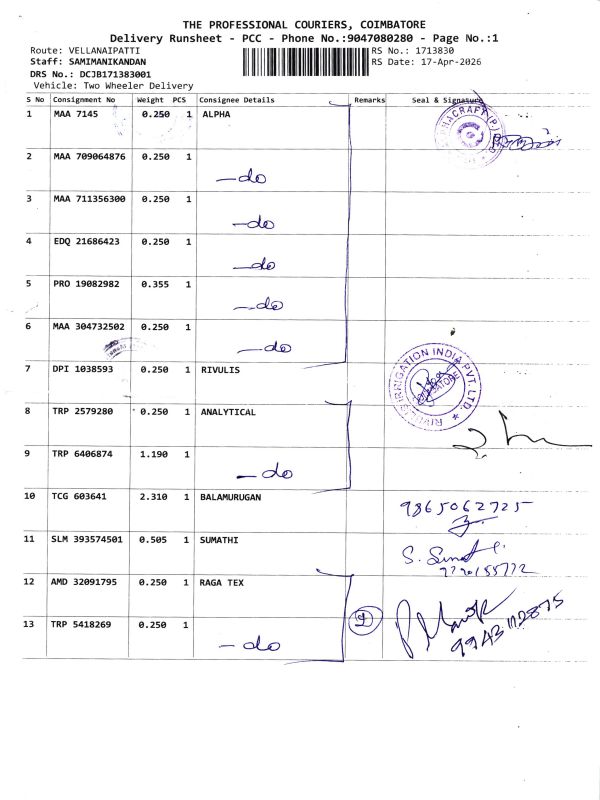 THE PROFESSIONAL COURIERS, COIMBATORE
Delivery Runsheet - PCC - Phone No.:9047080280 - Page No.:1
Route: VELLANAIPATTI RS No.: 1713830
Staff: SAMIMANIKANDAN RS Date: 17-Apr-2026
DRS No.: DCJB171383001
Vehicle: Two Wheeler Delivery
S No Consignment No Weight PCS Consignee Details Remarks Seal & Signature
1 MAA 7145 0.250 1 ALPHA
2 MAA 709064876 0.250 1
- do
3 MAA 711356300 0.250 1
- do
4 EDQ 21686423 0.250 1
- do
5 PRO 19082982 0.355 1
- do
6 MAA 304732502 0.250 1
- do
7 DPI 1038593 0.250 1 RIVULIS
RIVULIS IRRIGATION INDIA PVT. LTD.
8 TRP 2579280 0.250 1 ANALYTICAL
9 TRP 6406874 1.190 1
- do
10 TCG 603641 2.310 1 BALAMURUGAN
9865062725
11 SLM 393574501 0.505 1 SUMATHI
12 AMD 32091795 0.250 1 RAGA TEX
13 TRP 5418269 0.250 1 2
- do